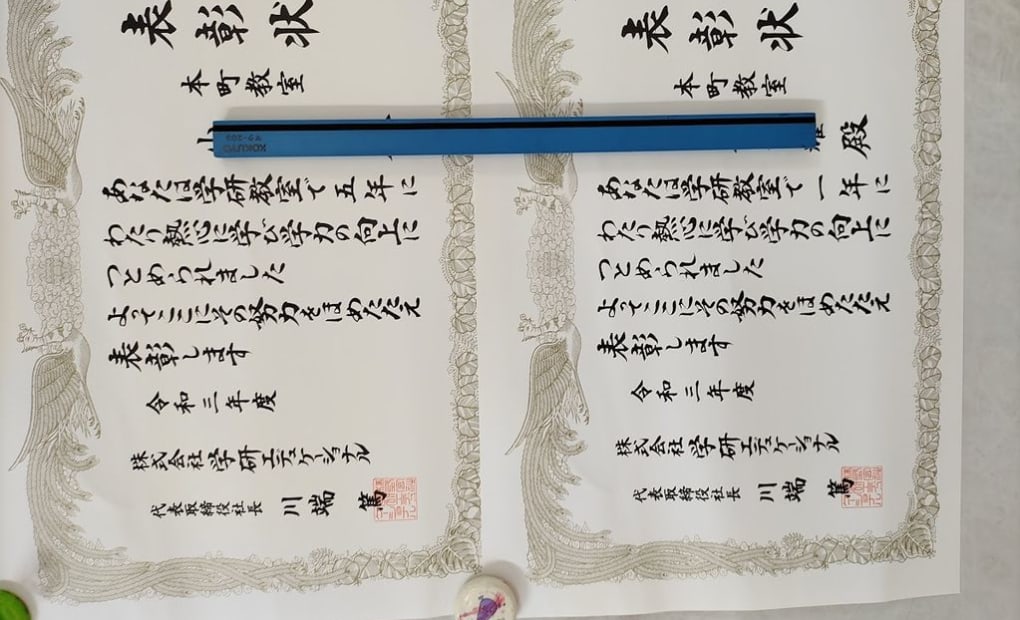 表彰状
本町教室
あなたは学研教室で五年に
わたり熱心に学び学力の向上に
つとめられました
よってここにその努力をほめたたえ
表彰します
令和三年度
株式会社 学研エデュケーショナル
代表取締役社長 川端 篤
表彰状
本町教室
殿
あなたは学研教室で一年に
わたり熱心に学び学力の向上に
つとめられました
よってここにその努力をほめたたえ
表彰します
令和三年度
株式会社 学研エデュケーショナル
代表取締役社長 川端 篤
KOKUYO